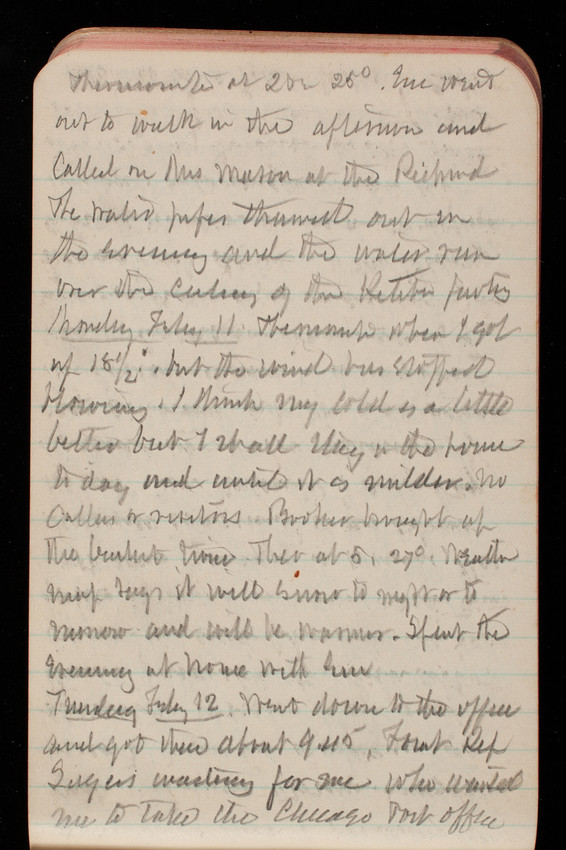 Thermometer at 2 o'c 25°. Eve went
out to walk in the afternoon and
called on Mrs Mason at the Richmond
The water pipes thawed out in
the evening and the water ran
over the ceiling of the Kitchen
Monday Feby 11. Thermometer when I got
up 18 1/2°, but the wind has stopped
blowing. I think my cold is a little
better but I shall stay in the house
to day and until it is milder. No
callers or visitors. Booker brought up
the basket Ther at 5, 27°. Weather
map says it will snow to night or to
morrow and will be warmer. Spent the
Evening at home with Eve
Tuesday Feby 12. Went down to the office
and got there about 9 45, Found Rep
waiting for me who wanted
me to take the Chicago Post office